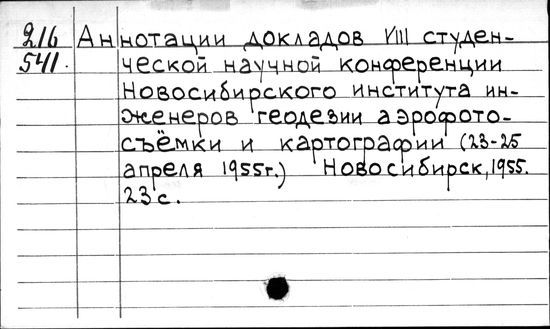 216 Аннотации докладов VIII студен-
541. ческой научной конференции
Новосибирского института ин-
женеров геодезии аэрофото-
съёмки и картографии (23-25
апреля 1955г.) Новосибирск, 1955.
23 с.